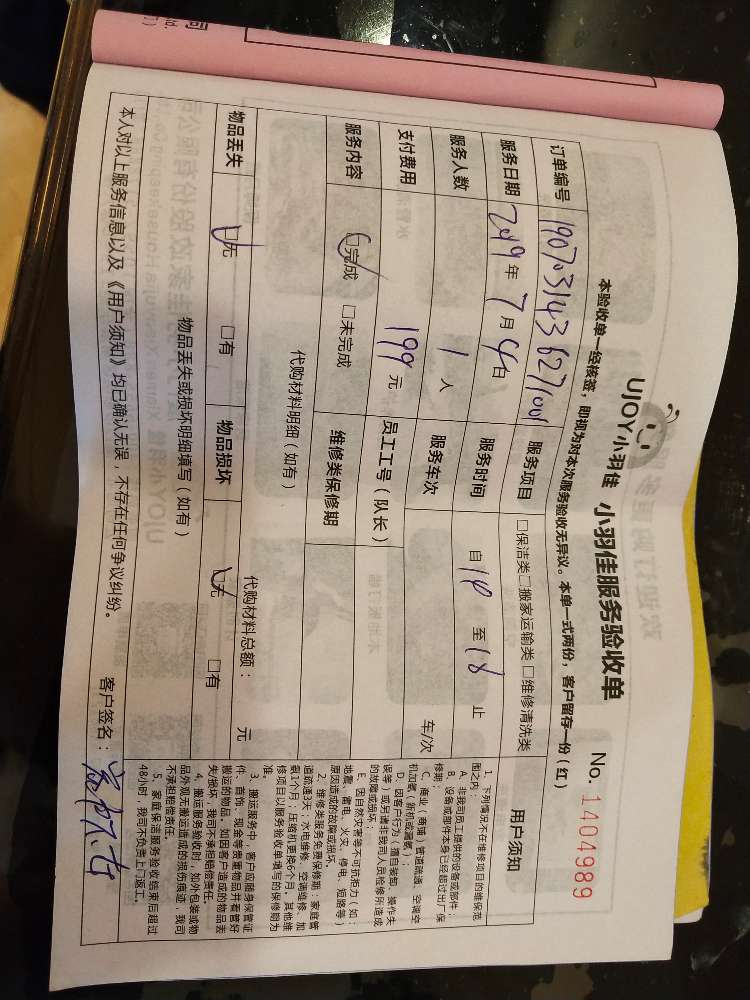 UJOY小羽佳 小羽佳服务验收单 No.1404989
本验收单一经核签，即视为对本次服务验收无异议。本单一式两份，客户留存一份（红）
订单编号 190703143627001 服务项目 □保洁类□搬家运输类□维修清洗类
服务日期 2019年7月4日 服务时间 自 至18止
服务人数 1人 服务车次 车/次
支付费用 199元 员工工号（队长）
服务内容 □完成 □未完成 维修类保修期
代购材料明细（如有） 代购材料总额： 元
物品丢失 □无 □有 物品损坏 □无 □有
物品丢失或损坏明细填写（如有）
本人对以上服务信息以及《用户须知》均已确认无误，不存在任何争议纠纷。 客户签名：
用户须知
1、下列情况不在维修项目的维保范
围之内：
A、非我司员工提供的设备或部件；
B、设备或部件本身已经超过出厂保
修期；
C、商业（商铺）管道疏通、空调空
机加氟（新机或漏氟）；
D、因客户行为（擅自装卸、操作失
误等）或另请非我司人员检修所造成
的故障或损坏；
E、因自然灾害等不可抗拒力（如：
地震、雷电、火灾、停电、短路等）
原因造成的故障或损坏。
2、维修类服务免费保修期：家庭管
道疏通3天；水电维修、空调维修、加
氨1个月；压缩机更换6个月，其他维
修项目以服务验收单填写的保修期为
准。
3、搬运服务中，客户应随身保管证
件、首饰、现金等贵重物品并看管好
搬运的物品，如因客户造成的物品丢
失/损坏，我司不承担赔偿责任。
4、搬运服务验收时，如外包装或物
品外观无搬运造成的损伤痕迹，我司
不承担赔偿责任。
5、家庭保洁服务验收结束后超过
48小时，我司不负责上门返工。